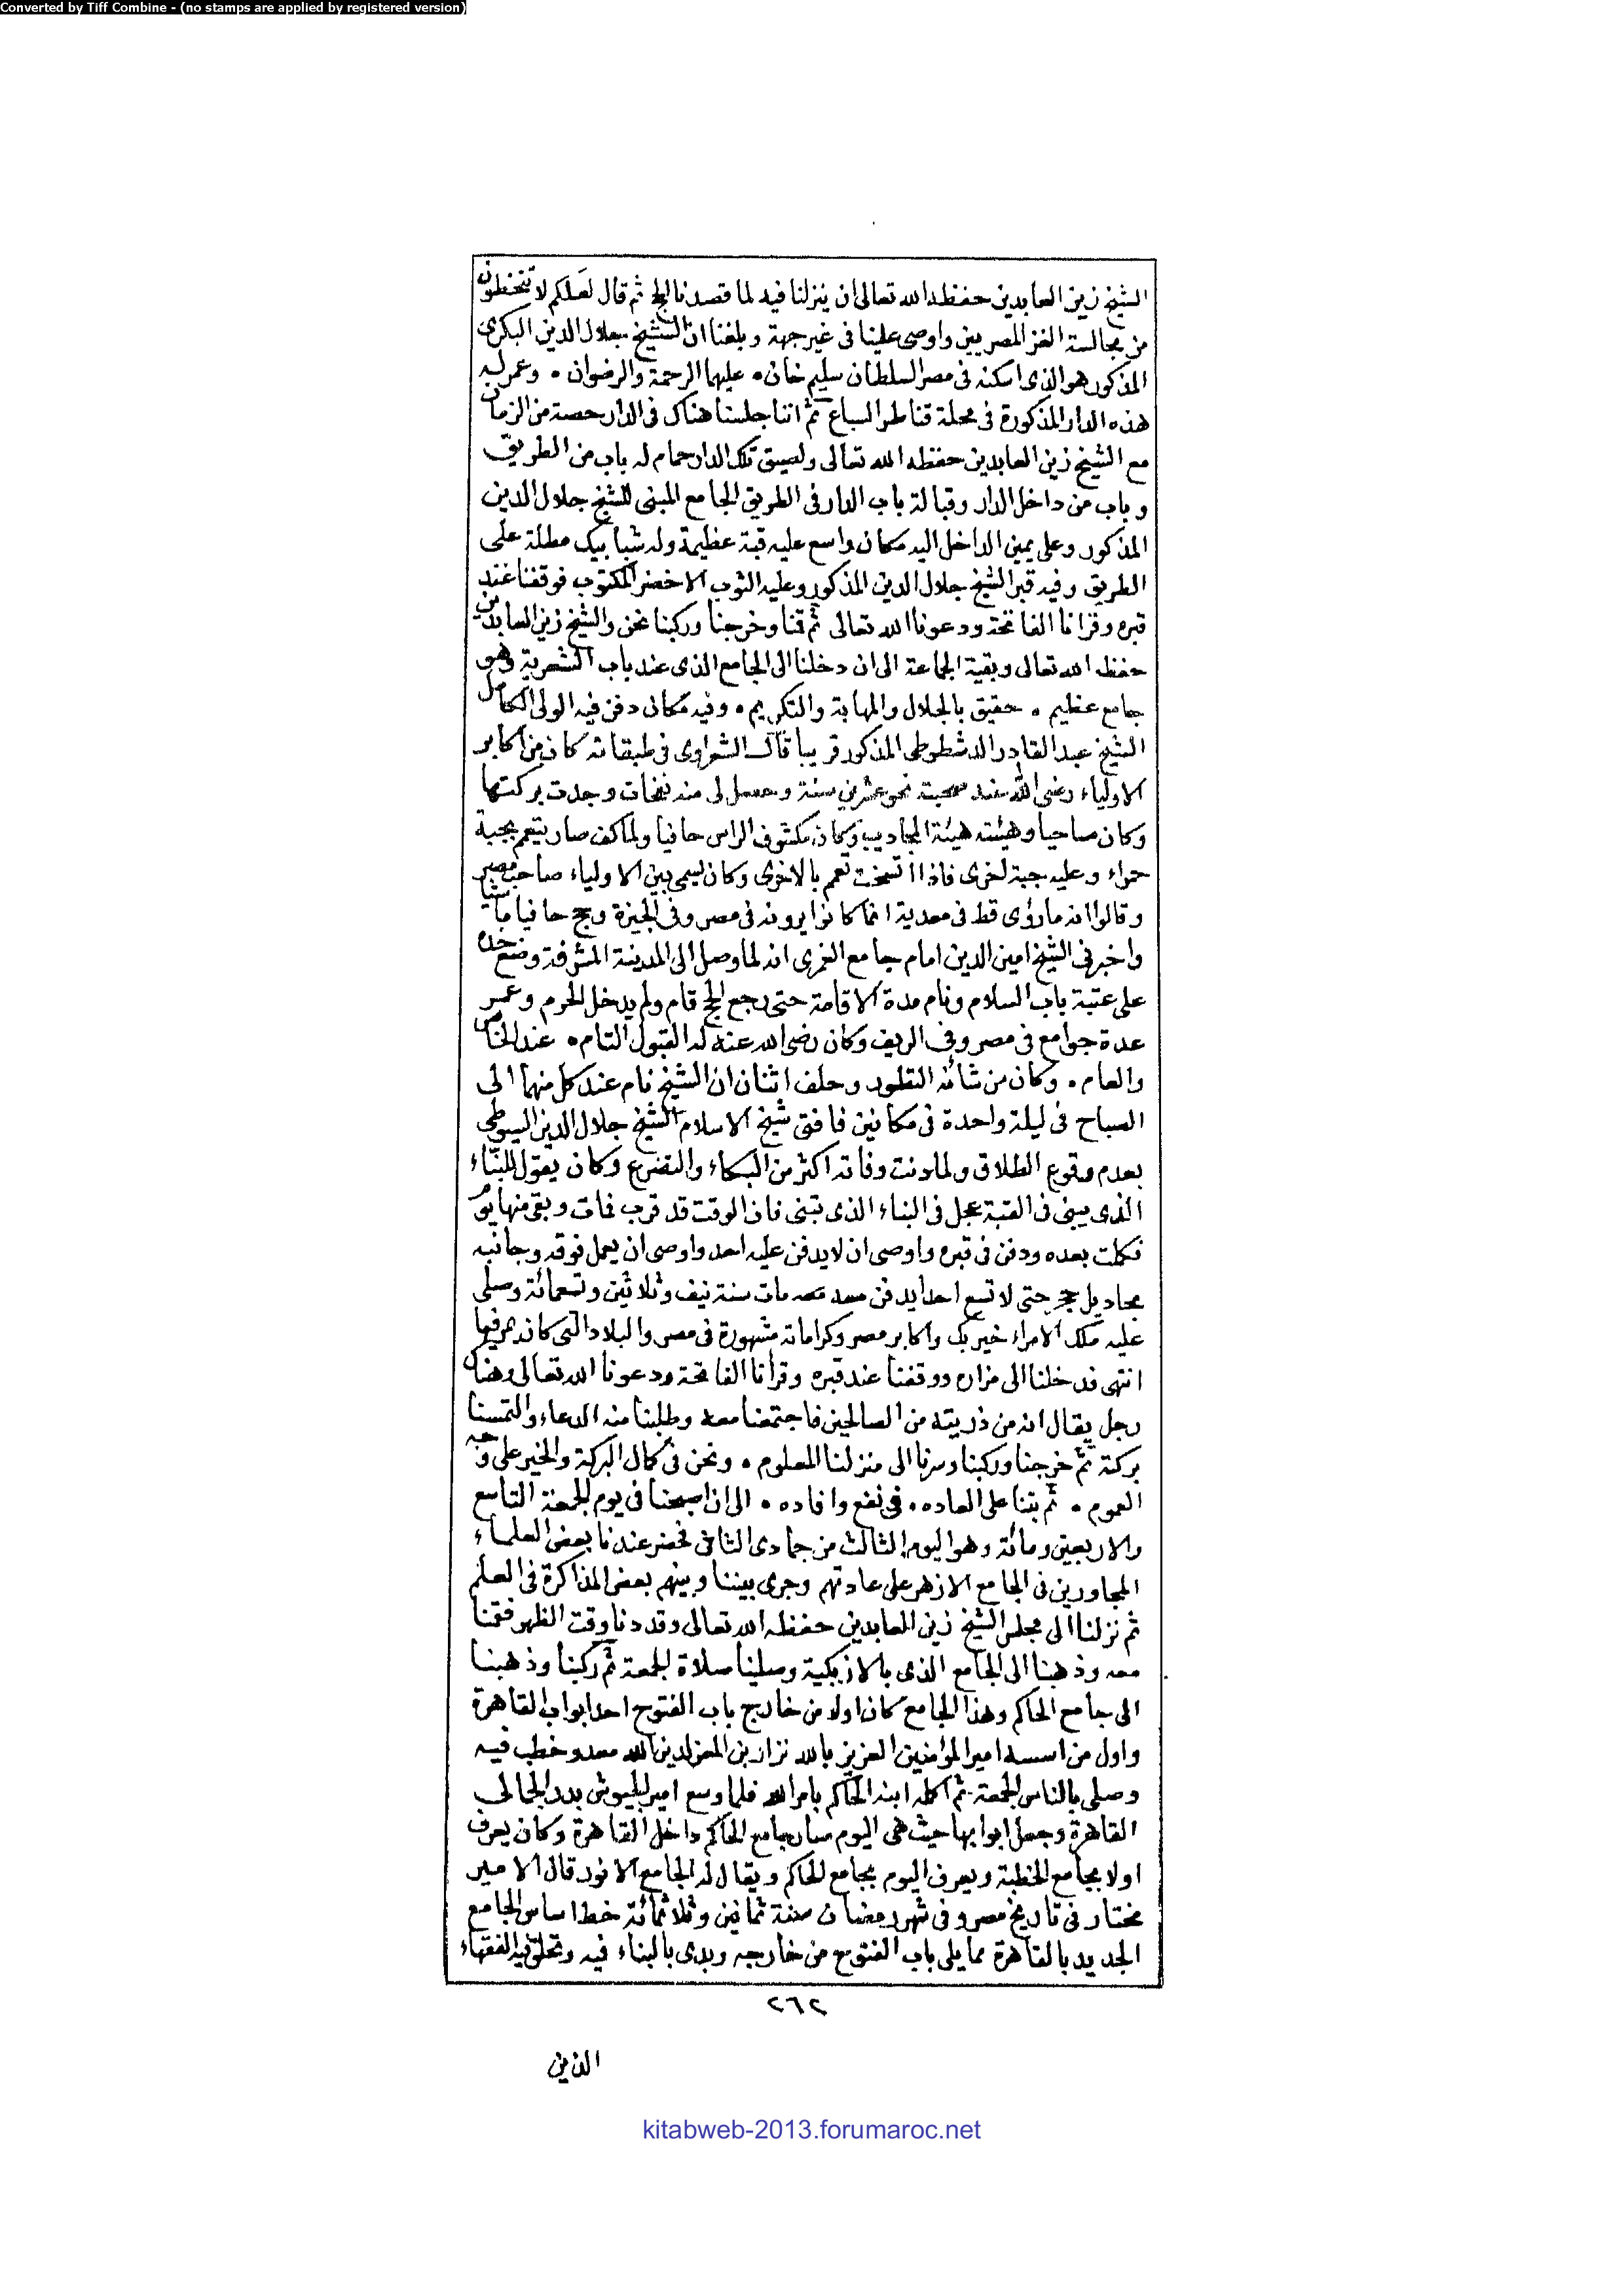 Converted by Tiff Combine - (no stamps are applied by registered version)
الشيخ زين العابدين حفظه الله تعالى ان ينزلنا فيه لما قصدنا الحج ثم قال لعلكم لا تتحفظون
من مجالسة الغز المصريين واوصى علينا فى غير جهة وبلغنا ان الشيخ جلال الدين البكرى
المذكور هو الذى اسكنه فى مصر السلطان سليم خان ۰ عليهما الرحمة والرضوان ۰ وعمر له
هذه الدار المذكورة فى محلة قناطر السباع ثم اننا جلسنا هناك فى الدار حصة من الزمان
مع الشيخ زين العابدين حفظه الله تعالى ولصيق تلك الدار حمام له باب من الطريق
وباب من داخل الدار وقبالة باب الدار فى الطريق الجامع المبنى للشيخ جلال الدين
المذكور وعلى يمين الداخل اليه مكان واسع عليه قبة عظيمة وله شبابيك مطلة على
الطريق وفيه قبر الشيخ جلال الدين المذكور وعليه الثوب الاخضر المكتوب فوقفنا عند
قبره وقرانا الفاتحة ودعونا الله تعالى ثم قمنا وخرجنا وركبنا نحن والشيخ زين العابدين
حفظه الله تعالى وبقية الجماعة الى ان دخلنا الى الجامع الذى عند باب الشعرية وهو
جامع عظيم ۰ حقيق بالجلال والمهابة والتكريم ۰ وفيه مكان دفن فيه الولى الكامل
الشيخ عبد القادر الدشطوطى المذكور قريبا قال الشعراوى فى طبقاته كان من اكابر
الاولياء رضى الله عنه صحبته نحو عشرين سنة وحصل لى منه نفحات وجدت بركتها
وكان صاحيا وهيئته هيئة المجاذيب وكان مكشوف الراس حافيا ولما كف صار يتعمم بجبة
حمراء وعليه جبة اخرى فاذا اتسخت تعمم بالاخرى وكان يسمى بين الاولياء صاحب مصر
وقالوا انه ما رؤى قط فى معدية انما كانوا يرونه فى مصر وفى الجيزة وحج حافيا ماشيا
واخبرنى الشيخ امين الدين امام جامع الغمرى انه لما وصل الى المدينة المشرفة وضع خده
على عتبة باب السلام ونام مدة الاقامة حتى رجع الحج قام ولم يدخل الحرم وعمر
عدة جوامع فى مصر وفى الريف وكان رضى الله عنه له القبول التام ۰ عند الخاص
والعام ۰ وكان من شأنه التطور وحلف اثنان ان الشيخ نام عند كل منهما الى
الصباح فى ليلة واحدة فى مكانين فافتى شيخ الاسلام الشيخ جلال الدين السيوطى
بعدم وقوع الطلاق ولما دنت وفاته اكثر من البكاء والتضرع وكان يقول للبنّاء
الذى يبنى فى القبة عجل فى البناء الذى تبنى فان الوقت قد قرب فمات وبقى منها يوم
فكملت بعده ودفن فى قبره واوصى ان لا يدفن عليه احد واوصى ان يعمل فوقه وجانبيه
مجاديل حجر حتى لا تسع احدا يدفن معه مات سنة نيف وثلاثين وتسعمائة وصلى
عليه ملك الامراء خير بك واكابر مصر وكراماته مشهورة فى مصر والبلاد التى كان يمر فيها
انتهى فدخلنا الى مزاره ووقفنا عند قبره وقرأنا الفاتحة ودعونا الله تعالى وهناك
رجل يقال انه من ذريته من الصالحين فاجتمعنا معه وطلبنا منه الدعاء والتمسنا
بركته ثم خرجنا وركبنا وسرنا الى منزلنا المعلوم ۰ ونحن فى كمال البركة والخير على وجه
العموم ۰ ثم بتنا على العاده ۰ فى نفع وافاده ۰ الى ان اصبحنا فى يوم الجمعة التاسع
والاربعين ومائة وهو اليوم الثالث من جمادى الثانى فحضر عندنا بعض العلماء
المجاورين فى الجامع الازهر على عادتهم وجرى بيننا وبينهم بعض المذاكرة فى العلم
ثم نزلنا الى مجلس الشيخ زين العابدين حفظه الله تعالى وقد دنا وقت الظهر فقمنا
معه وذهبنا الى الجامع الذى بالازبكية وصلينا صلاة الجمعة ثم ركبنا وذهبنا
الى جامع الحاكم وهذا الجامع كان اولا من خارج باب الفتوح احد ابواب القاهرة
واول من اسسه امير المؤمنين العزيز بالله نزار بن المعز لدين الله معد وخطب فيه
وصلى بالناس الجمعة ثم اكمله ابنه الحاكم بامر الله فلما وسع امير الجيوش بدر الجمالى
القاهرة وجعل ابوابها حيث هى اليوم صار جامع الحاكم داخل القاهرة وكان يعرف
اولا بجامع الخطبة ويعرف اليوم بجامع الحاكم ويقال له الجامع الانور قال الامير
مختار فى تاريخ مصر وفى شهر رمضان سنة ثمانين وثلاثمائة خط اساس الجامع
الجديد بالقاهرة مما يلى باب الفتوح من خارجه وبدى بالبناء فيه وتحلق فيه الفقهاء
٢٦٢
الذين
kitabweb-2013.forumaroc.net